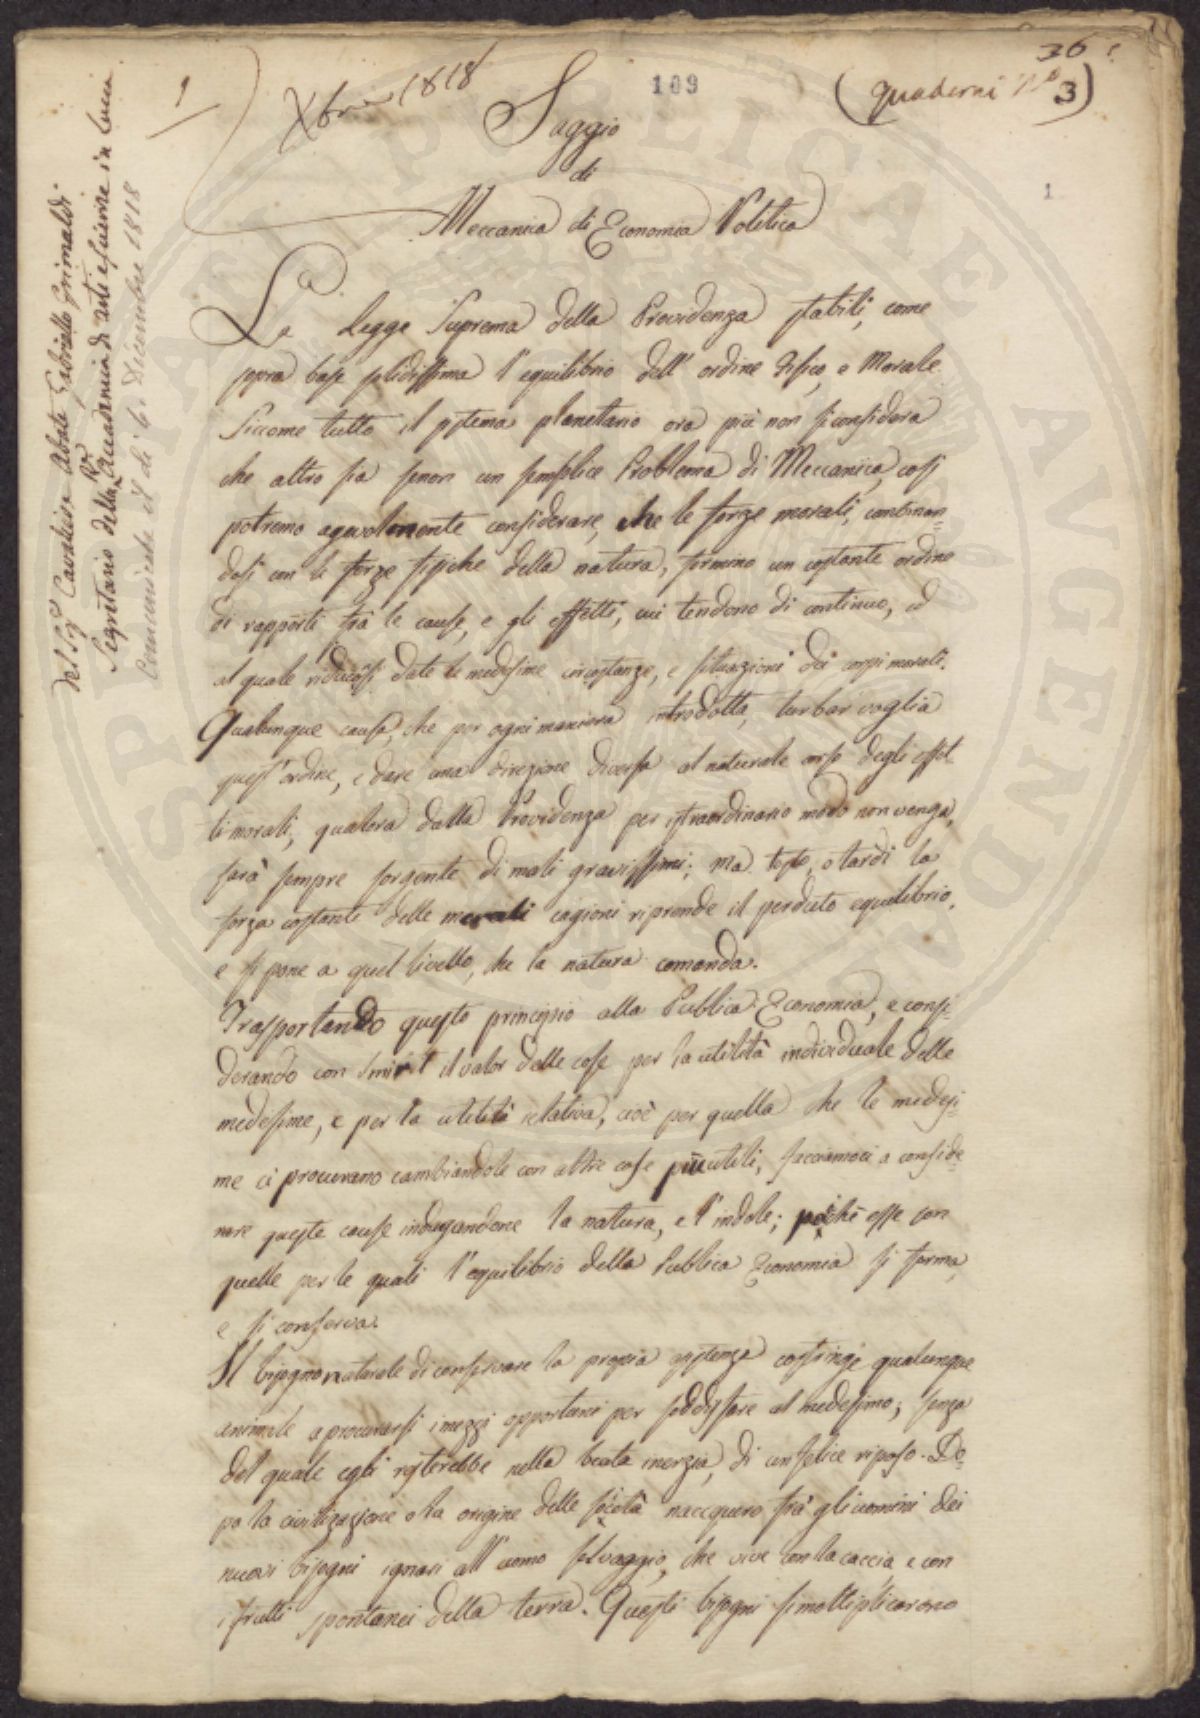 36.
109
(quaderni N° 3)
1
Xbre 1818
1
Saggio
di
Meccanica di Economia Politica
Del Sigr Cavaliere Abate Gabriello Grimaldi
Segretario della Rl Accademia di arti e scienze in Lucca
Comunicata il dì 6. Dicembre 1818
La Legge Suprema della Providenza stabilì, come
sopra base solidissima l'equilibrio dell'ordine Fisico, e Morale.
Siccome tutto il sistema planetario ora più non si considera
che altro sia senon un semplice Problema di Meccanica, così
potremo agevolmente considerare, che le forze morali, combinan-
dosi con le forze fisiche della natura, formino un costante ordine
di rapporti frà le cause, e gli effetti, cui tendono di continuo, ed
al quale riduconsi date le medesime circostanze, e situazioni dei corpi morali.
Qualunque causa, che per ogni maniera introdotta, turbar voglia
quest'ordine, e dare una direzione diversa al naturale corso degli effet-
ti morali, qualora dalla Providenza per istraordinario modo non venga,
sarà sempre sorgente di mali gravissimi; ma tosto, o tardi la
forza costante delle morali cagioni riprende il perduto equilibrio,
e si pone a quel livello, che la natura comanda.
Trasportando questo principio alla Publica Economia, e consi-
derando con Smith il valor delle cose per la utilità individuale delle
medesime, e per la utilità relativa, cioè per quella che le medesi-
me ci procurano cambiandole con altre cose più utili, facciamoci a conside-
rare queste cause indagandone la natura, e l'indole; poichè esse son
quelle per le quali l'equilibrio della Publica Economia si forma,
e si conserva.
Il bisogno naturale di conservare la propria esistenza costringe qualunque
animale a procurarsi i mezzi opportuni per soddisfare al medesimo; senza
del quale egli resterebbe nella beata inerzia, di un felice riposo. Do-
po la civilizazione o la origine delle società nacquero frà gli uomini dei
nuovi bisogni ignari all'uomo selvaggio, che vive con la caccia e con
i frutti spontanei della terra. Questi bisogni si moltiplicarono